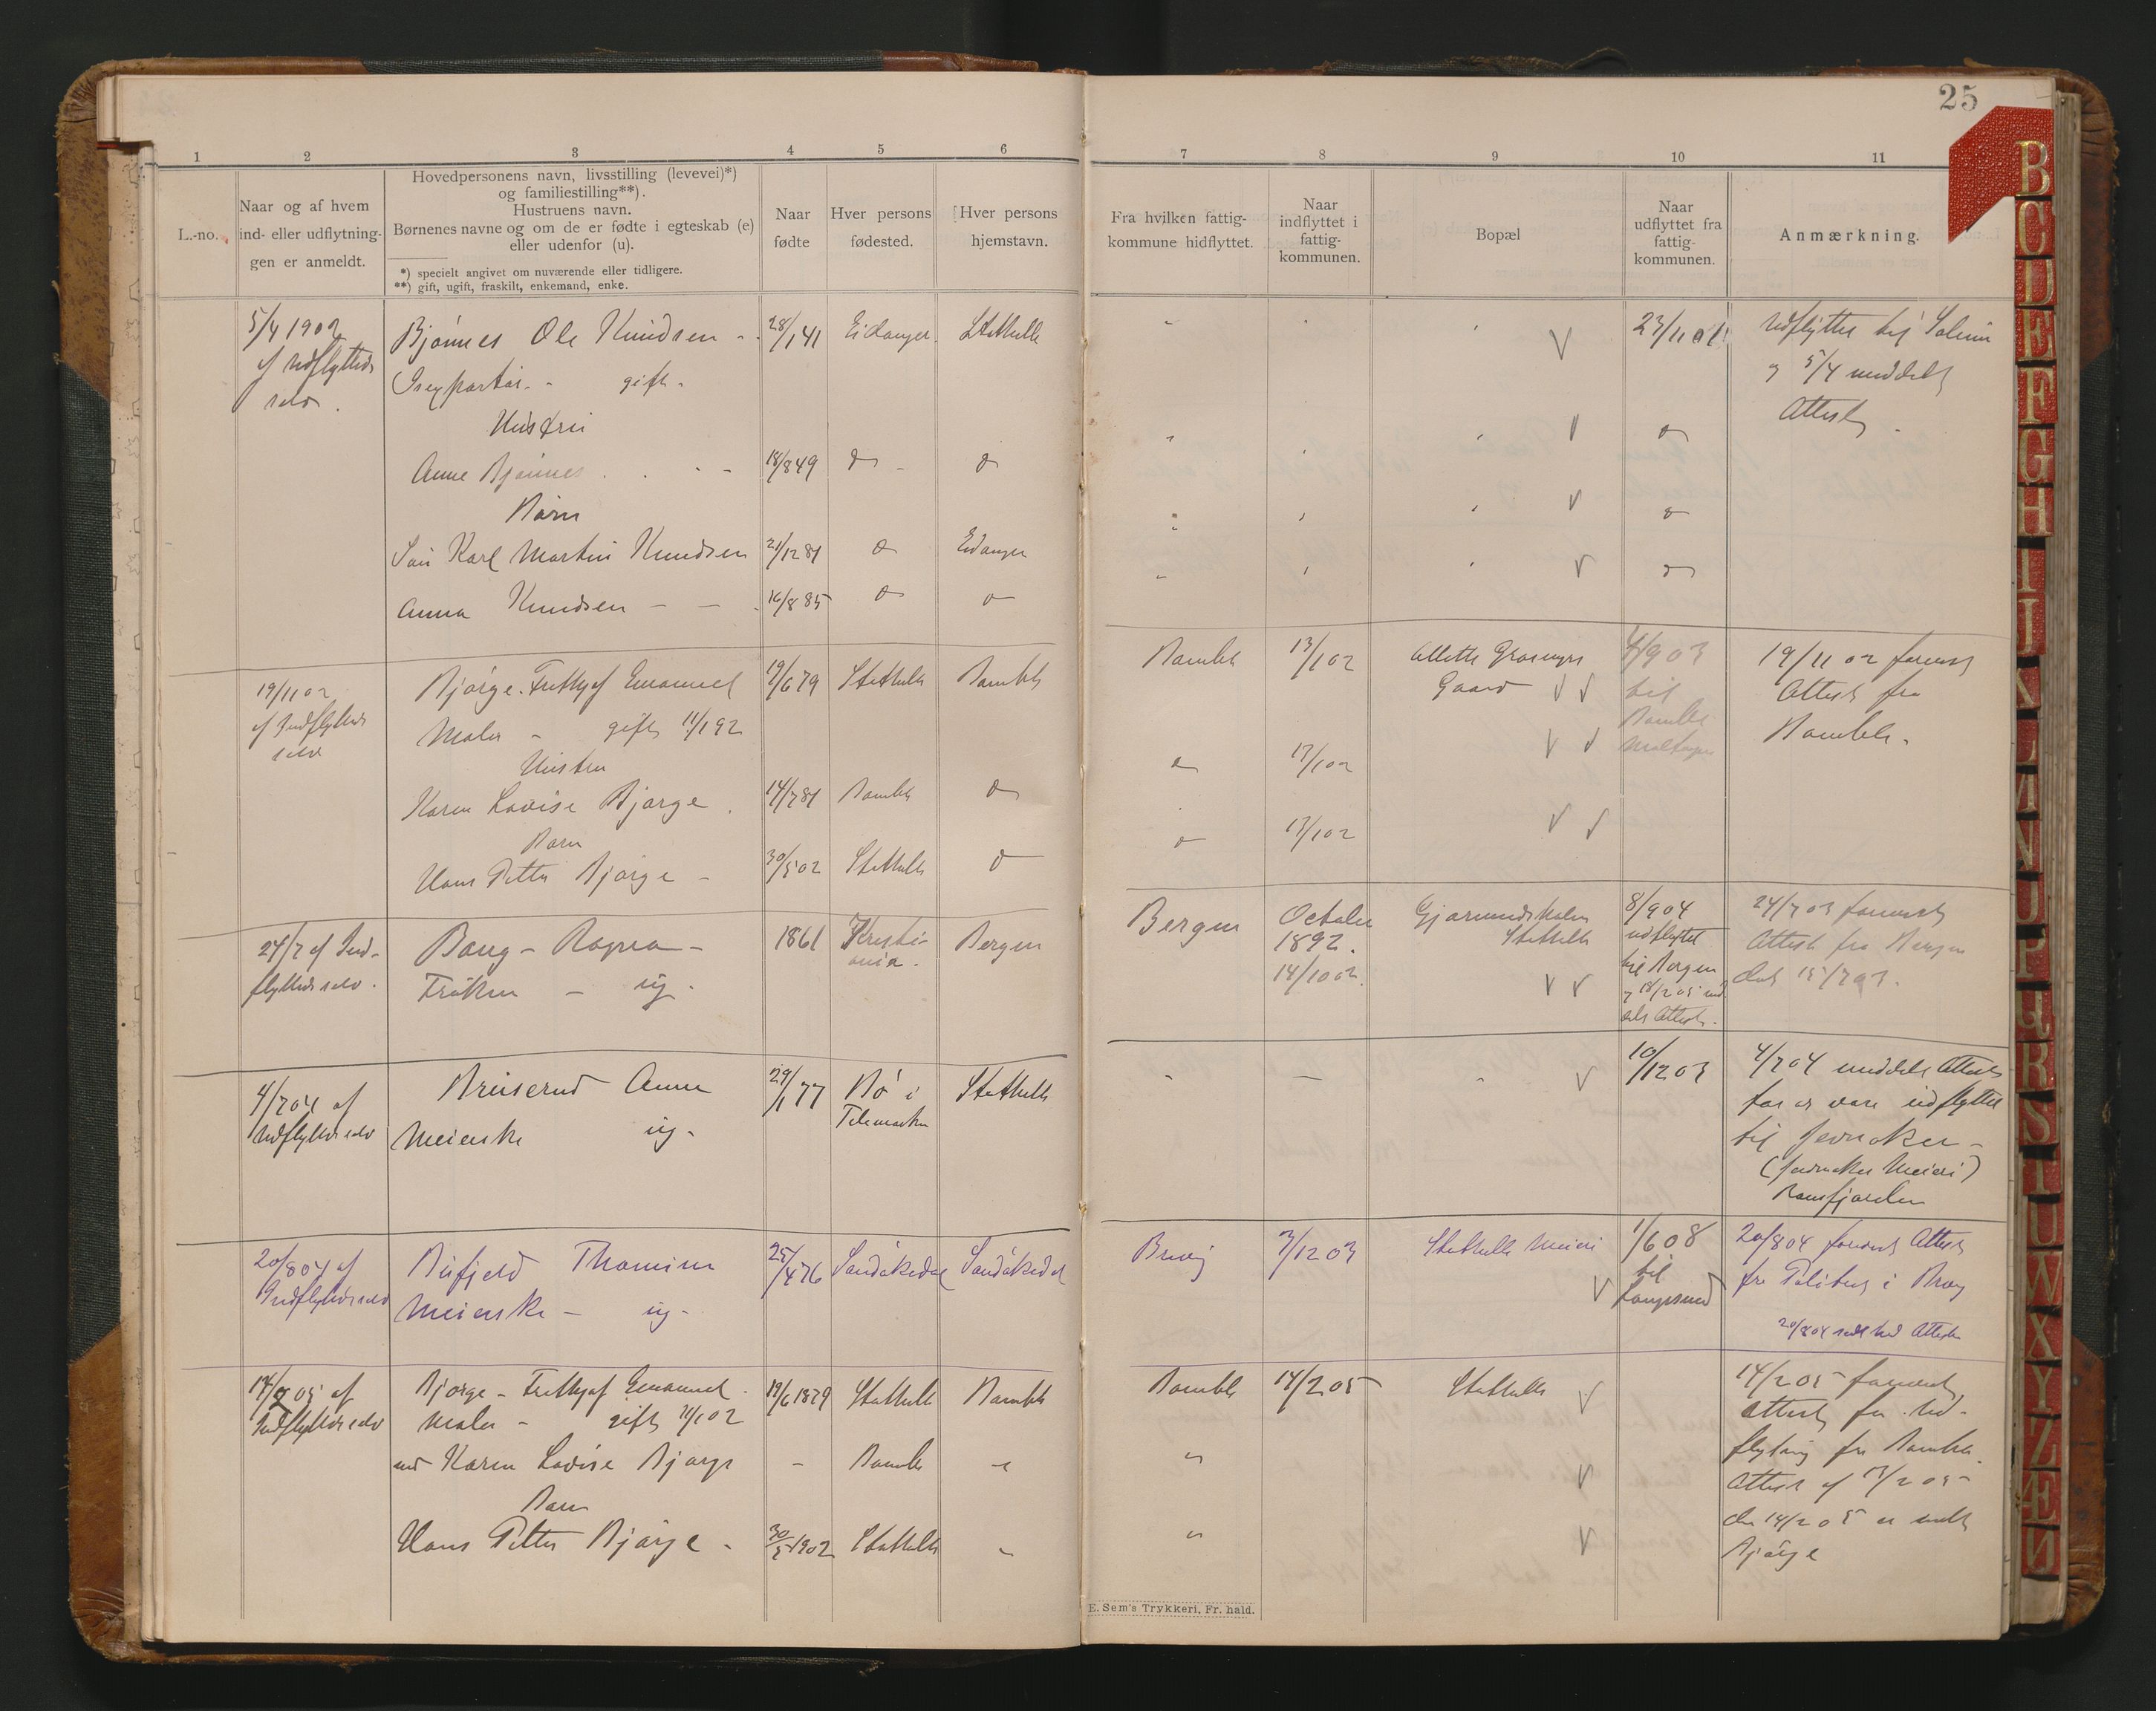 25
1 2 3 4 5 6 7 8 9 10 11
L.-no.
Naar og af hvem
ind- eller udflytnin-
gen er anmeldt.
Hovedpersonens navn, livsstilling (levevei)*)
og familiestilling**).
Hustruens navn.
Børnenes navne og om de er fødte i egteskab (e)
eller udenfor (u).
*) specielt angivet om nuværende eller tidligere.
**) gift, ugift, fraskilt, enkemand, enke.
Naar
fødte
Hver persons
fødested.
Hver persons
hjemstavn.
Fra hvilken fattig-
kommune hidflyttet.
Naar
indflyttet i
fattig-
kommunen.
Bopæl
Naar
udflyttet fra
fattig-
kommunen.
Anmærkning.
5/4 1902
af Udflyttede
selv.
Bjønnes Ole Knudsen - 28/1 41 Eidanger. Stathelle
gift.
Hustru
Anne Bjønnes 18/8 49
Børn
Karl Martin Knudsen 21/12 81 Eidanger
Anna Knudsen - - 16/8 85
23/11 01
Udflyttet til Solum
og 5/4 meddelt
Attest.
19/11 02
af Indflyttede
selv
Bjørge. Frithjof Emanuel 19/6 79 Stathelle Bamble
Maler - gift
Hustru
Karen Lovise Bjørge. 14/7 81 Bamble
Barn
Hans Petter Bjørge - 30/5 02 Stathelle
Bamble 13/1 02
Gaard
13/1 02
13/1 02
til
Bamble
19/11 02 forevist
Attest fra
Bamble.
24/7 af Ind-
flyttede selv.
Bang - Ragna - 1861 Kristi-
ania. Bergen
Frøken - ug.
Bergen October
1892.
14/10 02.
Stathelle
8/9 04
udflyttet
til Bergen
24/7 03 forevist
Attest fra Bergen
dat 15/7 03.
4/7 04 af
Udflyttede selv
Bruserud Anne 29/1 77 Bø i
Telemarken Stathelle
Meierske ug.
10/12 03
4/7 04 meddelt Attest
for at være udflyttet
til Jevnaker -
(Jevnaker Meieri)
20/8 04 af
Indflyttede selv
Thomine 25/4 76 Sandøkedal Sandøkedal
Meierske - ug -
Brevig 3/12 03 Stathelle Meieri
1/6 08
til
Langesund
20/8 04 forevist Attest
fra Politiet i Brevig
20/8 04
14/2 05 af
Indflyttede selv
Bjørge - Frithjof Emanuel. 19/6 1879 Stathelle Bamble
Maler - gift 11/1 02
med Karen Lovise Bjørge - Bamble
Barn
Hans Petter Bjørge - 30/5 1902 Stathelle
Bamble 14/2 05 Stathelle
14/2 05 forevist
Attest for Ud-
flytning fra Bamble.
Attest af 13/2 05
den 14/2 05 er meldt
Bjørge
E. Sem's Trykkeri, Fr. hald.
B
C
D
E
F
G
H
I
J
K
L
M
N
O
P
Q
R
S
T
U
W
X
Y
Z
Æ
Ø